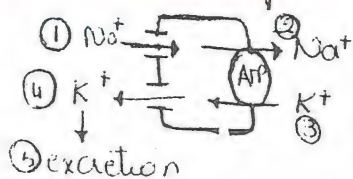 ① Na⁺ ② Na⁺
ATP
④ K⁺ K⁺
③
⑤ excretion